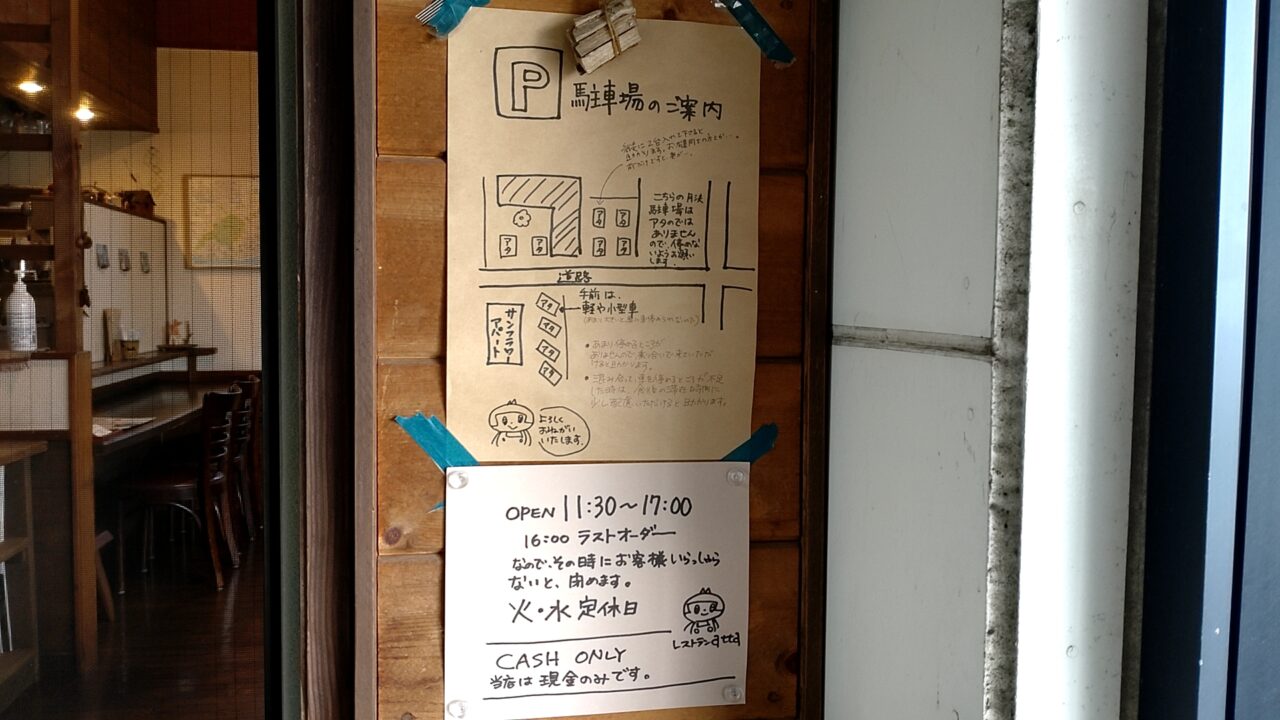 P
駐車場のご案内
こちらの月決
駐車場は
アタのでは
ありません
ので、停めな
いようお願い
します。
アタ
アタ
アタ
アタ
アタ
アタ
道路
手前は、
軽や小型車
サンフラワー
アパート
アタ
アタ
アタ
アタ
あまり停めるところが
ありませんので、乗り合いで来ていただ
けると助かります。
よろしく
おねがい
いたします。
OPEN 11:30～17:00
16:00 ラストオーダー
なので、その時にお客様いらっしゃら
ないと、閉めます。
火・水 定休日
レストラン
CASH ONLY
当店は現金のみです。